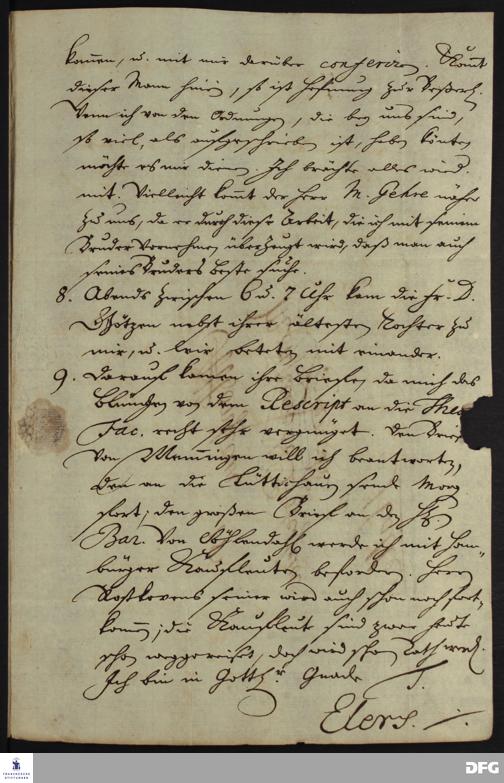 kommen, u. mit mir darüber conferiren. Kommt
dieser Mann hinein, so ist Hofnung zur Besserg.
Wenn ich von den Ordnungen, die bey uns sind,
so viel, als aufgeschrieben ist, haben könte,
möchte es mir dienen. Ich brächte alles wied.
mit. Vielleicht komt der Herr M. Gehre näher
zu uns, da er durch diese Arbeit, die ich mit seinem
Bruder vornehme, überzeugt wird, daß man auch
seines Bruders beste suche.
8. Abends zwischen 6 u. 7 Uhr kam die Fr. D.
Götzen nebst ihrer ältesten Tochter zu
mir, u. wir beteten mit einander.
9. Darauf kamen ihre Briefe, da mich das
von dem Rescript an die Theo
Fac. recht sehr vergnüget. Den Brief
von Memmingen will ich beantworten,
den an die Lüttichauin sende Morg
fort; den großen Brief an den H.
Bar. von Söhlendahl werde ich mit Ham-
burger Kaufleuten befördern. Herrn
seiner wird auch schon noch fort-
kommen; die Kaufleut sind zwar heute
schon weggereiset, doch wird schon Rath werd.
Ich bin in Gottes Gnade
Elers.
FRANCKESCHE STIFTUNGEN
DFG